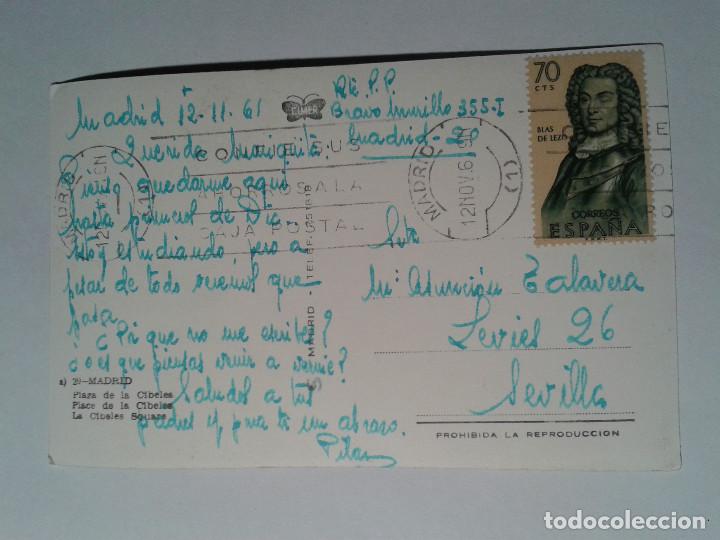 Madrid 12-11-61
Rte. P.P.
Bravo Murillo 355-I
Madrid-20
Querida amiguita:
quedarme aquí
hasta primeros de Dic.
Estoy estudiando, pero a
pesar de todo veremos que
pasa.
¿Por que no me escribes?
¿o es que piensas venir a verme?
Saludos a tus
padres y para ti un abrazo.
Pilar
Srta
Mª Asunción Talavera
Levies 26
Sevilla
FLMER
70
CTS
BLAS
DE LEZO
CORREOS
ESPAÑA
MADRID
12NOV.61
(1)
AHORROS
A LA
CAJA POSTAL
MADRID
a) 29-MADRID
Plaza de la Cibeles
Place de la Cibeles
La Cibeles Square
PROHIBIDA LA REPRODUCCION
todocoleccion.net